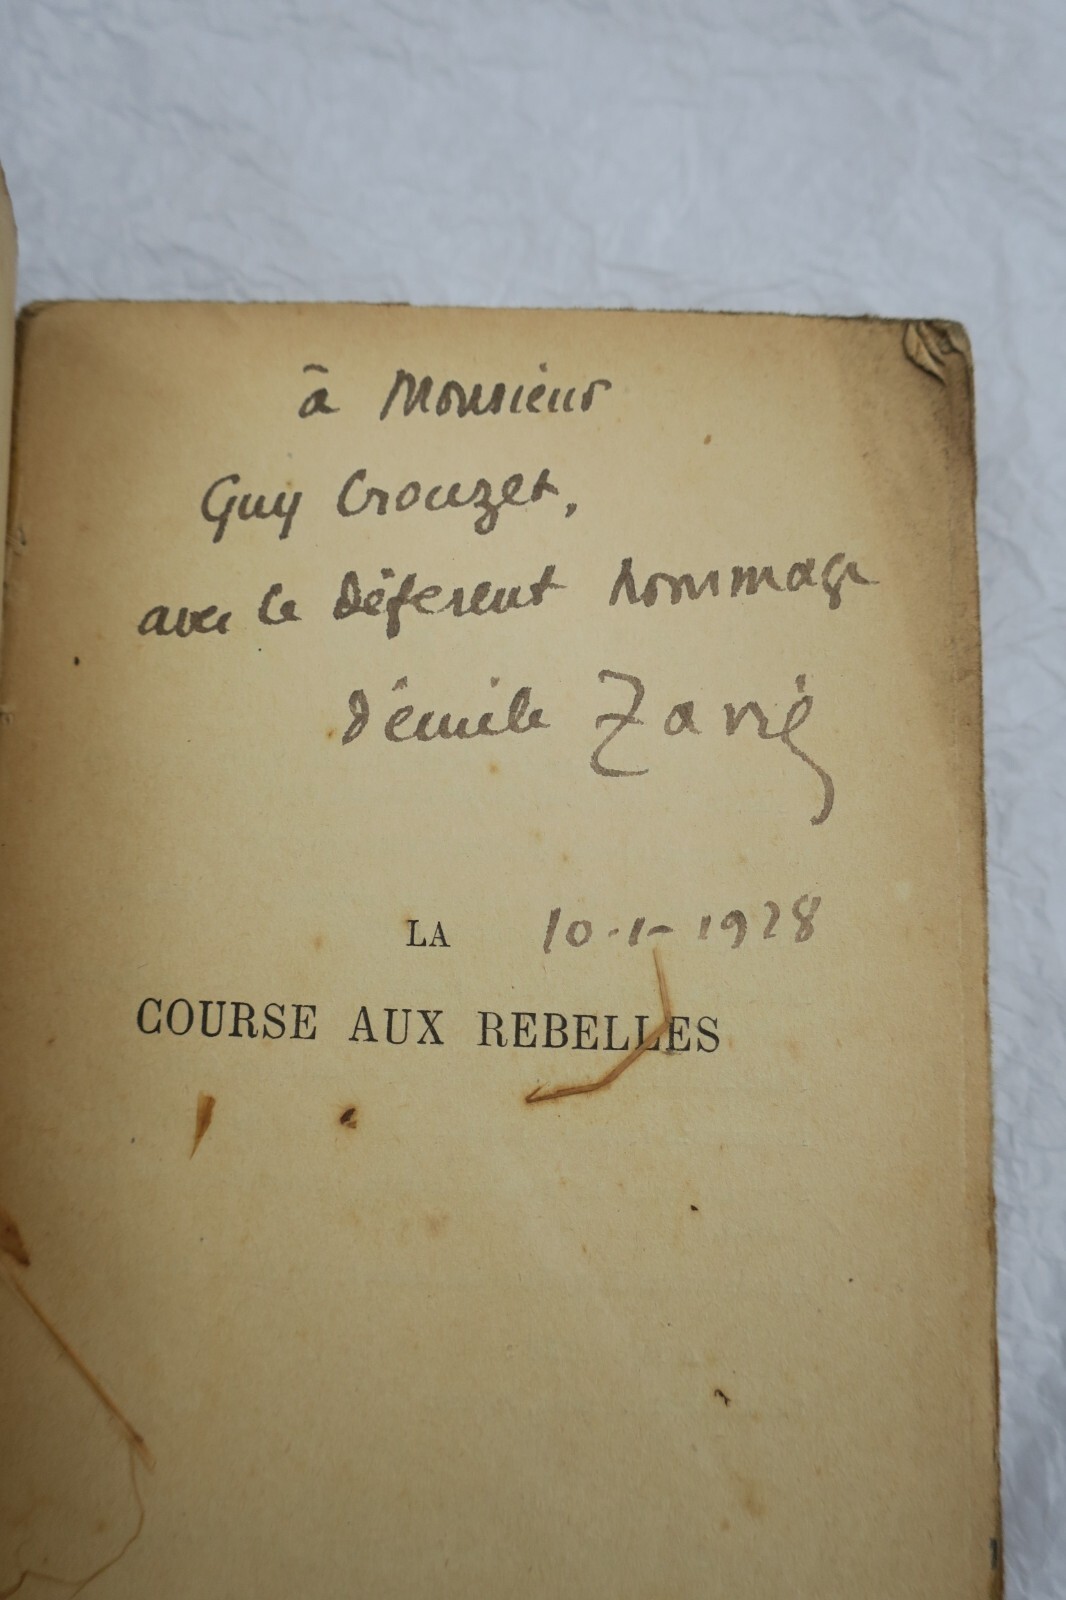 à Monsieur
Guy Crouzet,
avec le déférent hommage
d'émile Zavie
LA 10-1-1928
COURSE AUX REBELLES